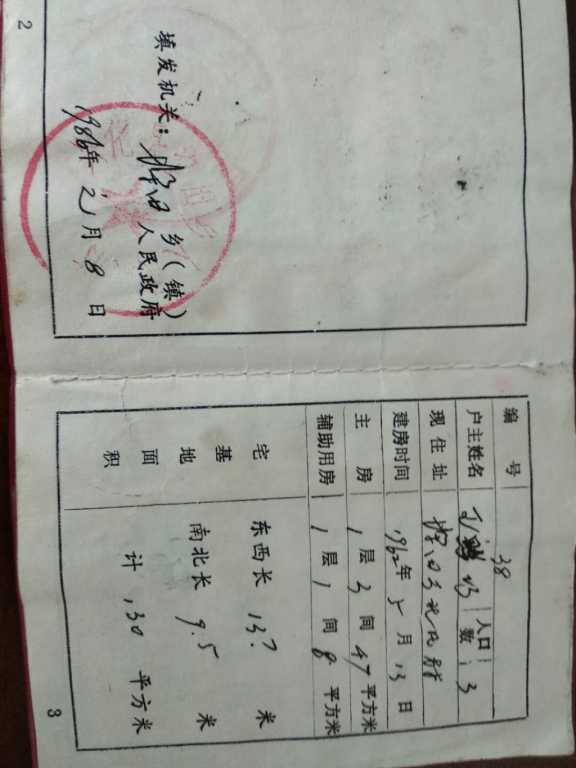 填发机关：
乡（镇）
人民政府
1986年2月8日
2
编号 38
户主姓名 人口数 3
现住址
建房时间 1962年5月13日
主房 1层3间47平方米
辅助用房 1层1间8平方米
宅基地面积
东西长 13.7 米
南北长 9.5 米
计 130 平方米
3